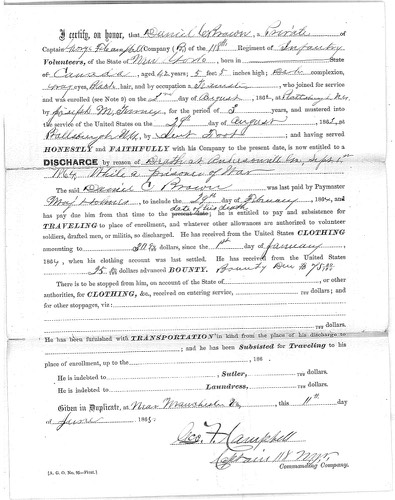 I certify, on honor, that Daniel C Brown, a Private of
Captain Geo. F. Campbell Company (B) of the 118th Regiment of Infantry
Volunteers, of the State of New York, born in State
of Canada, aged 42 years; 5 feet 8 inches high; Dark complexion,
Gray eyes, Black hair, and by occupation a, who joined for service
and was enrolled (see Note 9) on the day of August, 1862, at
by Joseph M., for the period of 3 years, and mustered into
the service of the United States on the 29th day of August, 1862, at
Plattsburgh N.Y., by; and having served
HONESTLY and FAITHFULLY with his Company to the present date, is now entitled to a
DISCHARGE by reason of Death at Andersonville Ga, Sept 1st
1864, While a prisoner of War
The said Daniel C. Brown was last paid by Paymaster
Maj Holmes, to include the 29th day of February, 1864, and
date of his death
has pay due him from that time to the present date; he is entitled to pay and subsistence for
TRAVELING to place of enrollment, and whatever other allowances are authorized to volunteer
soldiers, drafted men, or militia, so discharged. He has received from the United States CLOTHING
amounting to dollars, since the 1st day of January,
1864, when his clothing account was last settled. He has received from the United States
25 dollars advanced BOUNTY. Bounty Due $75
There is to be stopped from him, on account of the State of, or other
authorities, for CLOTHING, &c., received on entering service, dollars; and
for other stoppages, viz:
dollars.
He has been furnished with TRANSPORTATION in kind from the place of his discharge to
; and he has been Subsisted for Traveling to his
place of enrollment, up to the, 186 .
He is indebted to Sutler, dollars.
He is indebted to Laundress, dollars.
Given in Duplicate, at Near Manchester Va, this 11th day
of June 1865.
Geo. F. Campbell
Captain 118 N.Y.
Commanding Company.